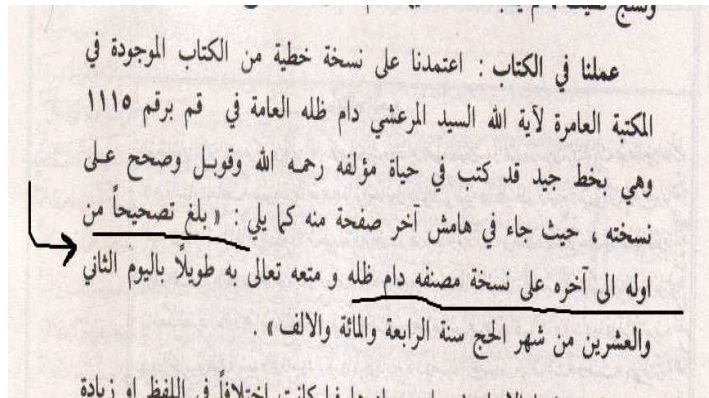 عملنا في الكتاب : اعتمدنا على نسخة خطية من الكتاب الموجودة في
المكتبة العامرة لآية الله السيد المرعشي دام ظله العامة في قم برقم ١١١٥
وهي بخط جيد قد كتب في حياة مؤلفه رحمه الله وقوبل وصحح على
نسخته ، حيث جاء في هامش آخر صفحة منه كما يلي : « بلغ تصحيحاً من
اوله الى آخره على نسخة مصنفه دام ظله و متعه تعالى به طويلًا باليوم الثاني
والعشرين من شهر الحج سنة الرابعة والمائة والالف » .
كانت اختلافاً في اللفظ او زيادة